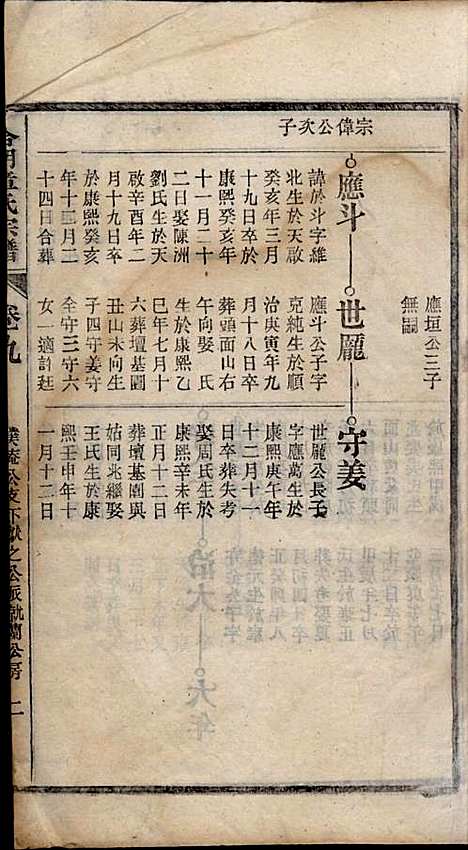 應垣公三子
無嗣
宗偉公次子
應斗
諱於斗字維
北生於天啟
癸亥年三月
十九日卒於
康熙癸亥年
十一月二十
二日娶陳洲
劉氏生於天
啟辛酉年二
月十九日卒
於康熙癸亥
年十二月二
十四日合葬
世龐
應斗公子字
克純生於順
治庚寅年九
月十八日卒
葬頭面山右
午向娶 氏
生於康熙乙
巳年七月十
六葬壇基圖
丑山未向生
子四守姜守
全守三守六
女一適許廷
守姜
世龐公長子
字應萬生於
康熙庚午年
十二月十一
日卒葬失考
娶周氏生於
康熙辛未年
正月十二日
葬壇基圖與
姑同兆繼娶
王氏生於康
熙壬申年十
一月十二日
章氏宗譜
卷九
公支下獻之公派就蘭公房 二